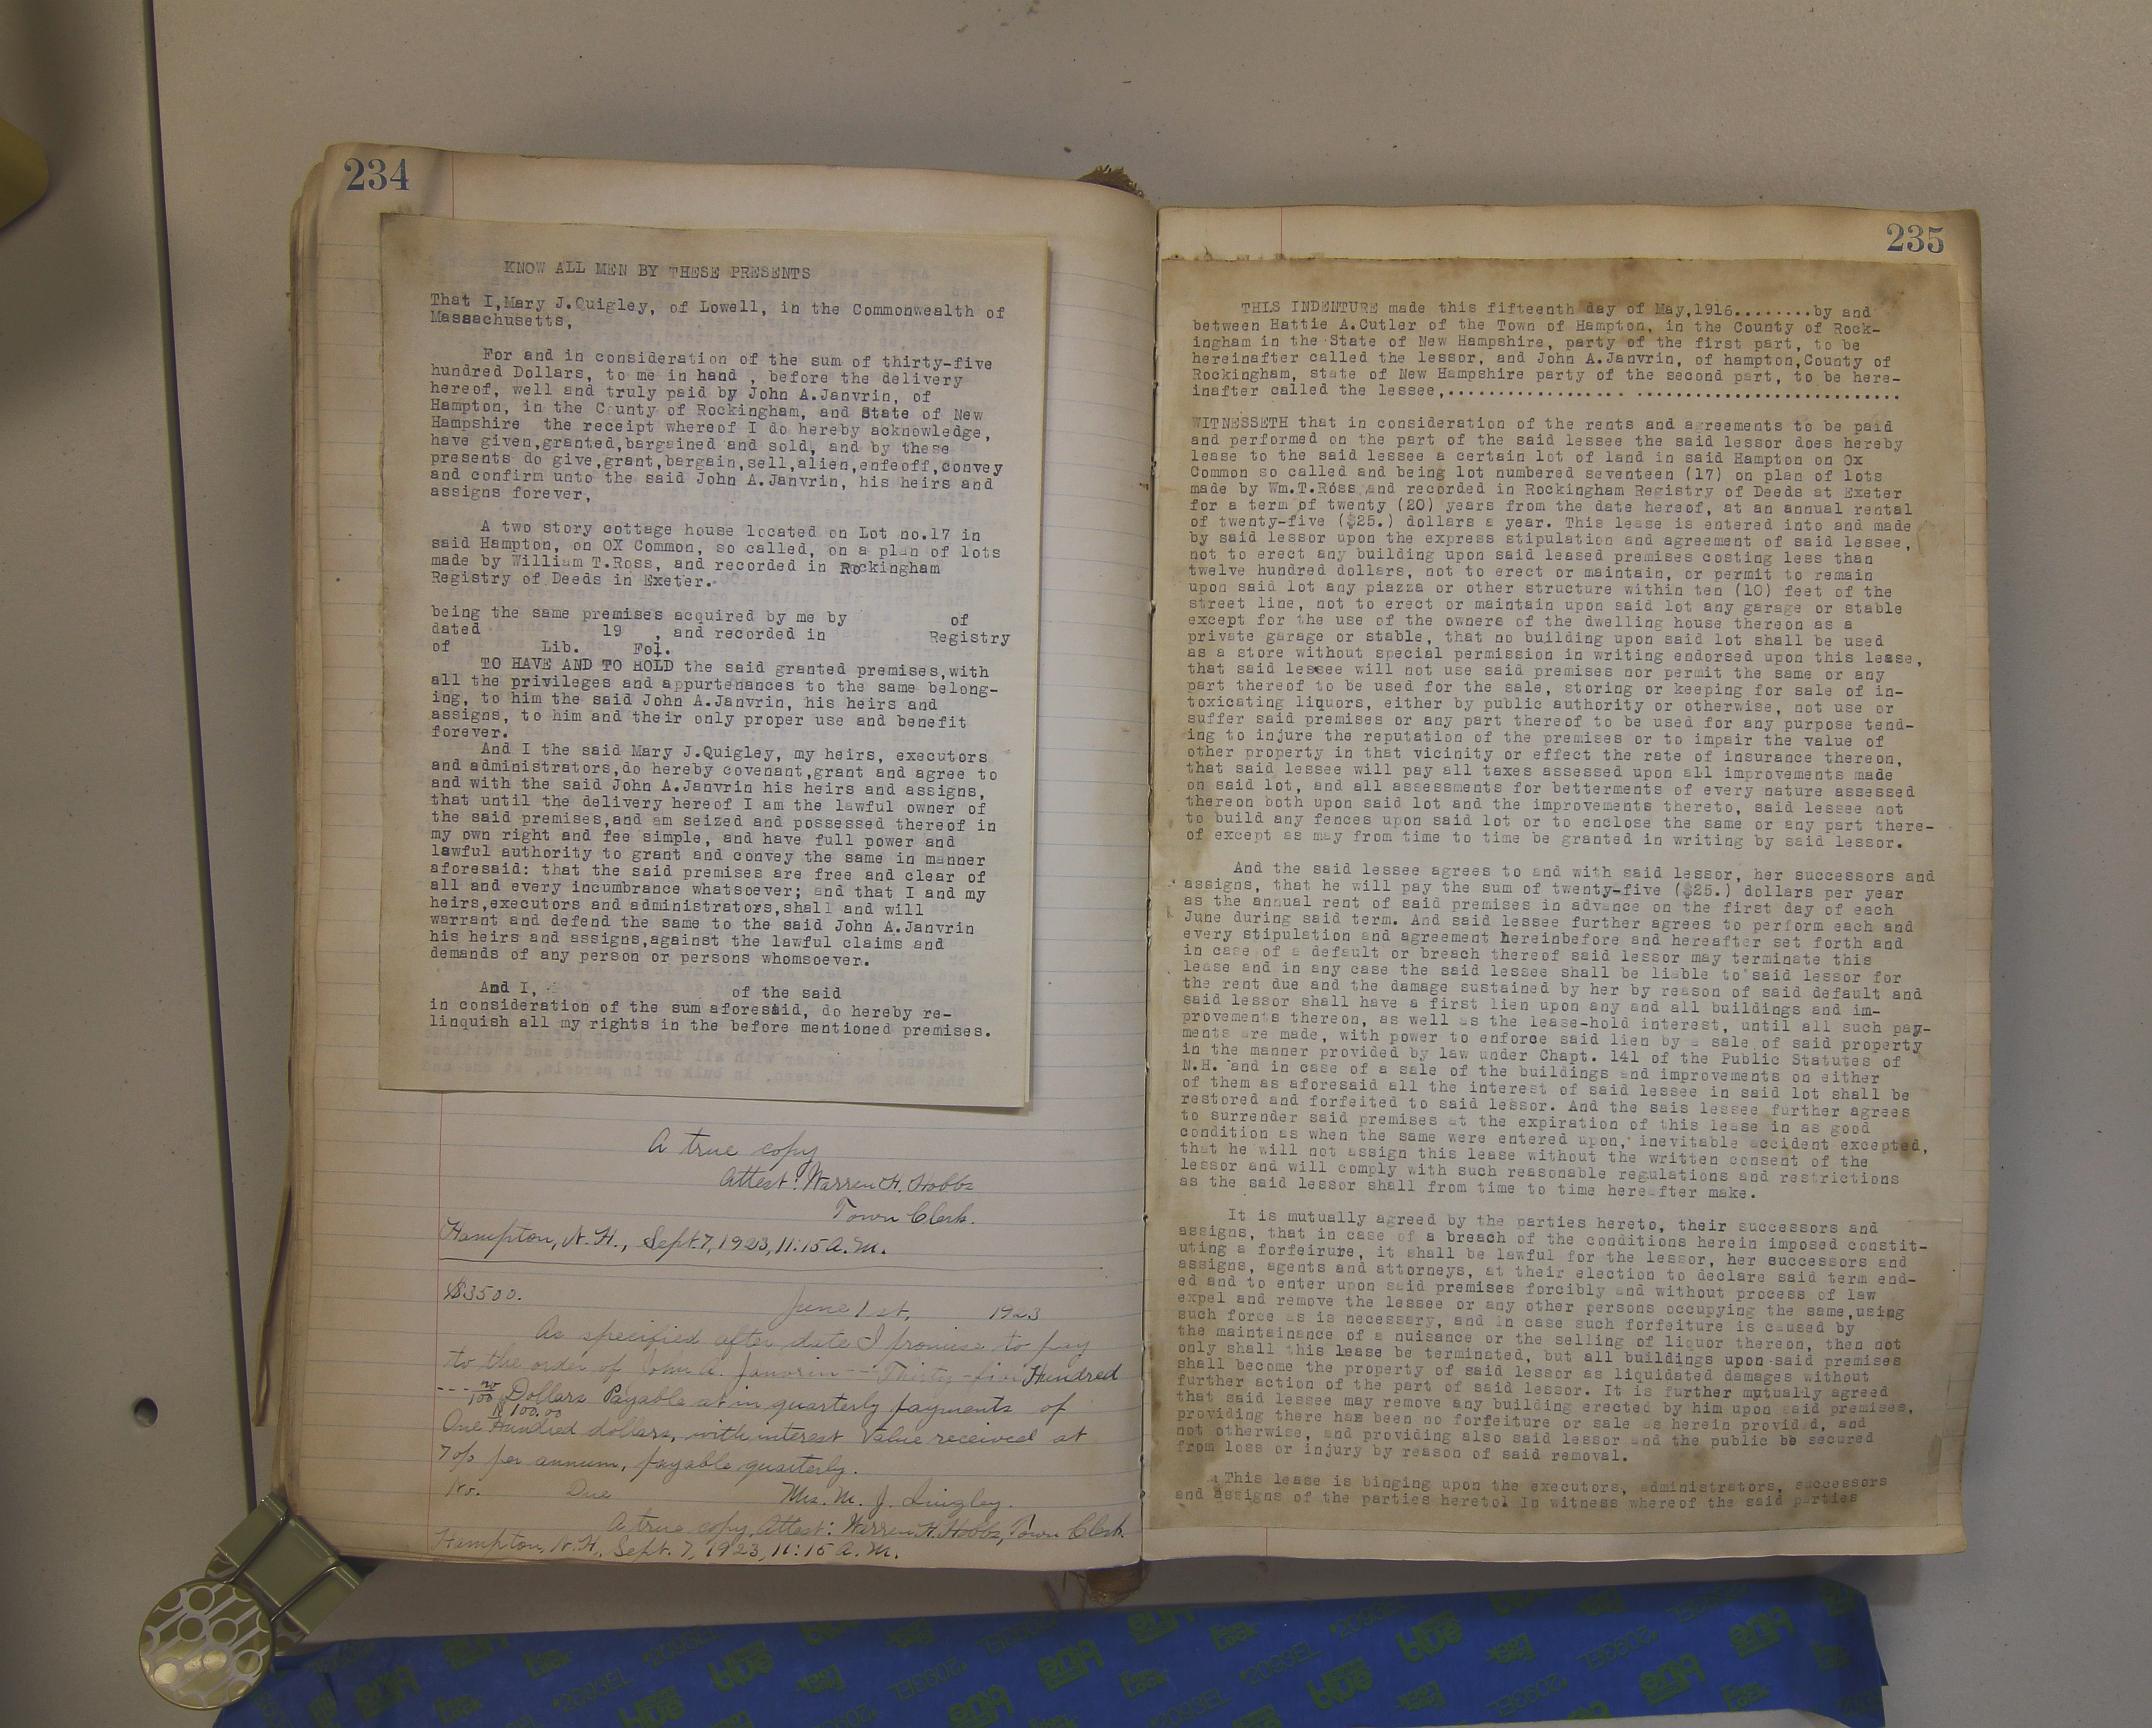 234
KNOW ALL MEN BY THESE PRESENTS
That I,Mary J.Quigley, of Lowell, in the Commonwealth of
Massachusetts,
For and in consideration of the sum of thirty-five
hundred Dollars, to me in hand , before the delivery
hereof, well and truly paid by John A.Janvrin, of
Hampton, in the County of Rockingham, and State of New
Hampshire the receipt whereof I do hereby acknowledge,
have given,granted,bargained and sold, and by these
presents do give,grant,bargain,sell,alien,enfeoff,convey
and confirm unto the said John A.Janvrin, his heirs and
assigns forever,
A two story cottage house located on Lot no.17 in
said Hampton, on OX Common, so called, on a plan of lots
made by William T.Ross, and recorded in Rockingham
Registry of Deeds in Exeter.
being the same premises acquired by me by of
dated 19 , and recorded in Registry
of Lib. Fol.
TO HAVE AND TO HOLD the said granted premises,with
all the privileges and appurtenances to the same belong-
ing, to him the said John A.Janvrin, his heirs and
assigns, to him and their only proper use and benefit
forever.
And I the said Mary J.Quigley, my heirs, executors
and administrators,do hereby covenant,grant and agree to
and with the said John A.Janvrin his heirs and assigns,
that until the delivery hereof I am the lawful owner of
the said premises,and am seized and possessed thereof in
my own right and fee simple, and have full power and
lawful authority to grant and convey the same in manner
aforesaid: that the said premises are free and clear of
all and every incumbrance whatsoever; and that I and my
heirs,executors and administrators,shall and will
warrant and defend the same to the said John A.Janvrin
his heirs and assigns,against the lawful claims and
demands of any person or persons whomsoever.
And I, of the said
in consideration of the sum aforesaid, do hereby re-
linquish all my rights in the before mentioned premises.
A true copy
Attest: Warren H. Hobbs
Town Clerk.
Hampton, N. H., Sept. 7, 1923, 11:15 A. M.
$3500. June 1st, 1923
As specified after date I promise to pay
to the order of John A. Janvrin -- Thirty-five Hundred
--- no/100 Dollars Payable at in quarterly payments of
$100.00
One Hundred dollars, with interest Value received at
7% per annum, payable quarterly.
No. Due Mrs. M. J. Quigley.
A true copy, Attest: Warren H. Hobbs, Town Clerk.
Hampton, N. H., Sept. 7, 1923, 11:15 A. M.
235
THIS INDENTURE made this fifteenth day of May,1916........by and
between Hattie A.Cutler of the Town of Hampton, in the County of Rock-
ingham in the State of New Hampshire, party of the first part, to be
hereinafter called the lessor, and John A.Janvrin, of hampton,County of
Rockingham, state of New Hampshire party of the second part, to be here-
inafter called the lessee,.................. ...........................
WITNESSETH that in consideration of the rents and agreements to be paid
and performed on the part of the said lessee the said lessor does hereby
lease to the said lessee a certain lot of land in said Hampton on Ox
Common so called and being lot numbered seventeen (17) on plan of lots
made by Wm.T.Ross and recorded in Rockingham Registry of Deeds at Exeter
for a term of twenty (20) years from the date hereof, at an annual rental
of twenty-five ($25.) dollars a year. This lease is entered into and made
by said lessor upon the express stipulation and agreement of said lessee,
not to erect any building upon said leased premises costing less than
twelve hundred dollars, not to erect or maintain, or permit to remain
upon said lot any piazza or other structure within ten (10) feet of the
street line, not to erect or maintain upon said lot any garage or stable
except for the use of the owners of the dwelling house thereon as a
private garage or stable, that no building upon said lot shall be used
as a store without special permission in writing endorsed upon this lease,
that said lessee will not use said premises nor permit the same or any
part thereof to be used for the sale, storing or keeping for sale of in-
toxicating liquors, either by public authority or otherwise, not use or
suffer said premises or any part thereof to be used for any purpose tend-
ing to injure the reputation of the premises or to impair the value of
other property in that vicinity or effect the rate of insurance thereon,
that said lessee will pay all taxes assessed upon all improvements made
on said lot, and all assessments for betterments of every nature assessed
thereon both upon said lot and the improvements thereto, said lessee not
to build any fences upon said lot or to enclose the same or any part there-
of except as may from time to time be granted in writing by said lessor.
And the said lessee agrees to and with said lessor, her successors and
assigns, that he will pay the sum of twenty-five ($25.) dollars per year
as the annual rent of said premises in advance on the first day of each
June during said term. And said lessee further agrees to perform each and
every stipulation and agreement hereinbefore and hereafter set forth and
in case of a default or breach thereof said lessor may terminate this
lease and in any case the said lessee shall be liable to said lessor for
the rent due and the damage sustained by her by reason of said default and
said lessor shall have a first lien upon any and all buildings and im-
provements thereon, as well as the lease-hold interest, until all such pay-
ments are made, with power to enforce said lien by a sale of said property
in the manner provided by law under Chapt. 141 of the Public Statutes of
N.H. and in case of a sale of the buildings and improvements on either
of them as aforesaid all the interest of said lessee in said lot shall be
restored and forfeited to said lessor. And the sais lessee further agrees
to surrender said premises at the expiration of this lease in as good
condition as when the same were entered upon, inevitable accident excepted,
that he will not assign this lease without the written consent of the
lessor and will comply with such reasonable regulations and restrictions
as the said lessor shall from time to time hereafter make.
It is mutually agreed by the parties hereto, their successors and
assigns, that in case of a breach of the conditions herein imposed constit-
uting a forfeirure, it shall be lawful for the lessor, her successors and
assigns, agents and attorneys, at their election to declare said term end-
ed and to enter upon said premises forcibly and without process of law
expel and remove the lessee or any other persons occupying the same,using
such force as is necessary, and in case such forfeiture is caused by
the maintainance of a nuisance or the selling of liquor thereon, then not
only shall this lease be terminated, but all buildings upon said premises
shall become the property of said lessor as liquidated damages without
further action of the part of said lessor. It is further mutually agreed
that said lessee may remove any building erected by him upon said premises,
providing there has been no forfeiture or sale as herein provided, and
not otherwise, and providing also said lessor and the public be secured
from loss or injury by reason of said removal.
This lease is binging upon the executors, administrators, successors
and assigns of the parties hereto. In witness whereof the said parties